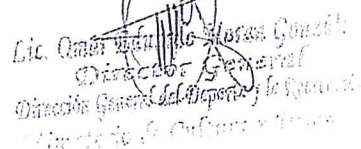 Lic. Omar Eduardo Moran Gonz
Director General
Dirección General del Deporte y la Recrea
Ministerio de Cultura y